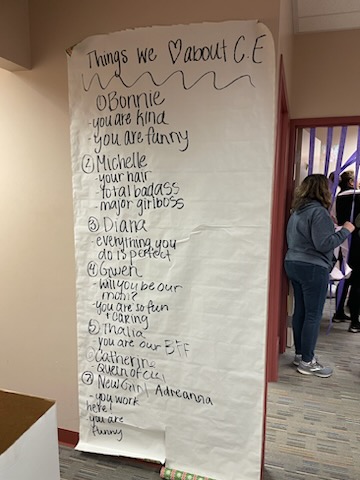 Things we ♡ about C.E
① Bonnie
- you are kind
- you are funny
② Michelle
- your hair
- total badass
- major girlboss
③ Diana
- everything you
do is perfect
④ Gwen
- will you be our
mom?
- you are so fun
& caring
⑤ Thalia
- you are our BFF
⑥ Catherine
Queen of
⑦ New Girl Adreanna
- you work
here!
- you are
funny